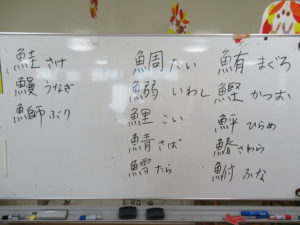 鮭 さけ
鰻 うなぎ
鰤 ぶり
鯛 たい
鰯 いわし
鯉 こい
鯖 さば
鱈 たら
鮪 まぐろ
鰹 かつお
鮃 ひらめ
鰆 さわら
鮒 ふな